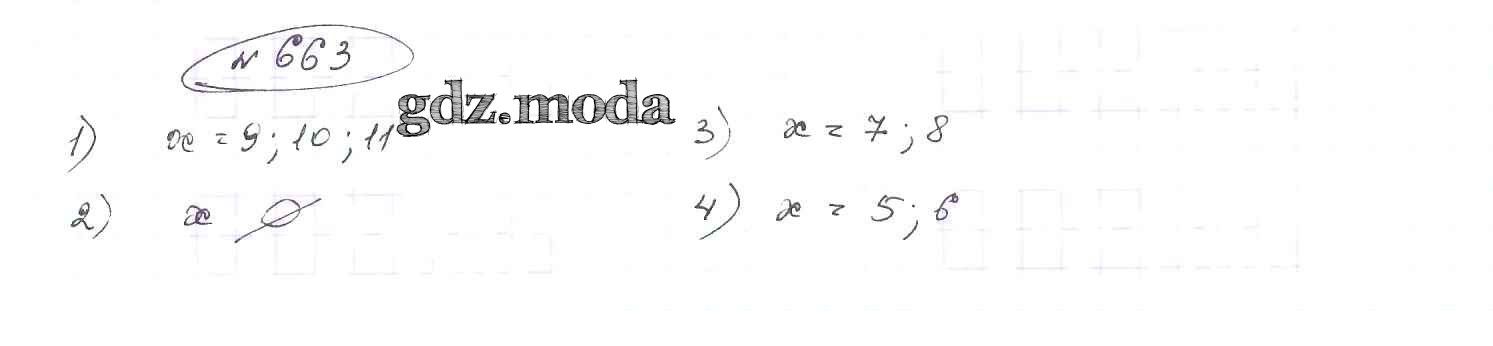 № 663
gdz.moda
1) x = 9; 10; 11
2) x ∅
3) x = 7; 8
4) x = 5; 6